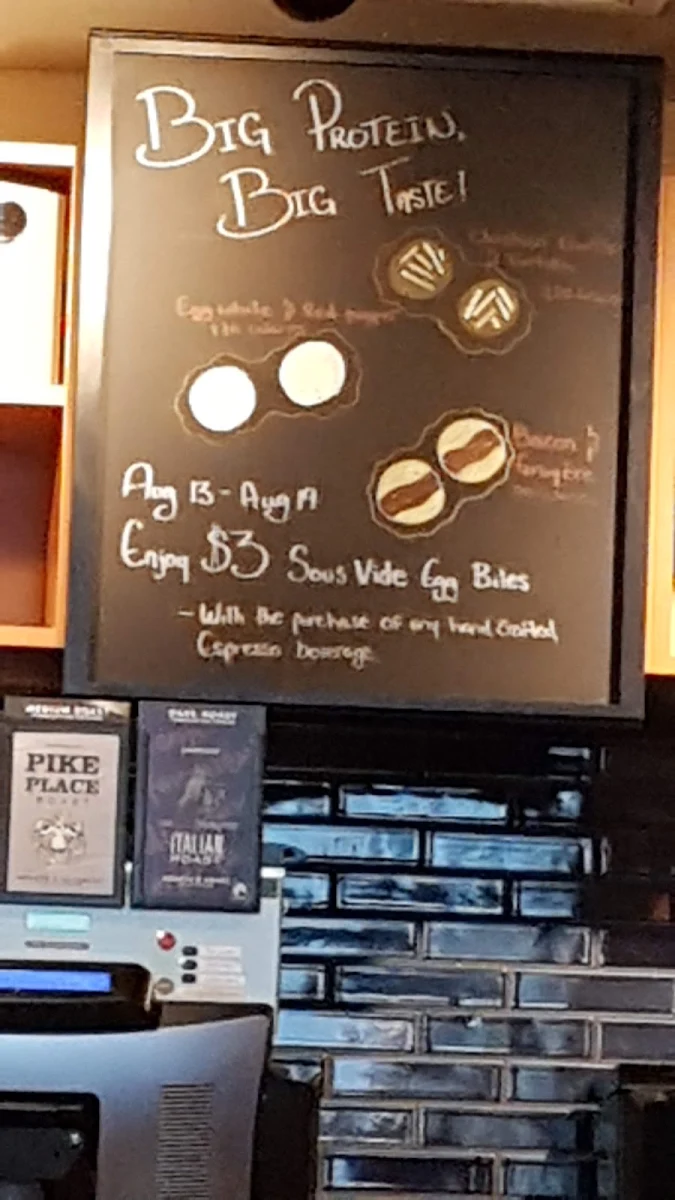 BIG PROTEIN,
BIG TASTE!
Egg white & Red pepper
170 calories
Bacon &
Gruyère
Aug 13 - Aug 19
Enjoy $3 Sous Vide Egg Bites
- With the purchase of any hand crafted
Espresso beverage
MEDIUM ROAST
PIKE
PLACE
ROAST
DARK ROAST
ITALIAN
ROAST